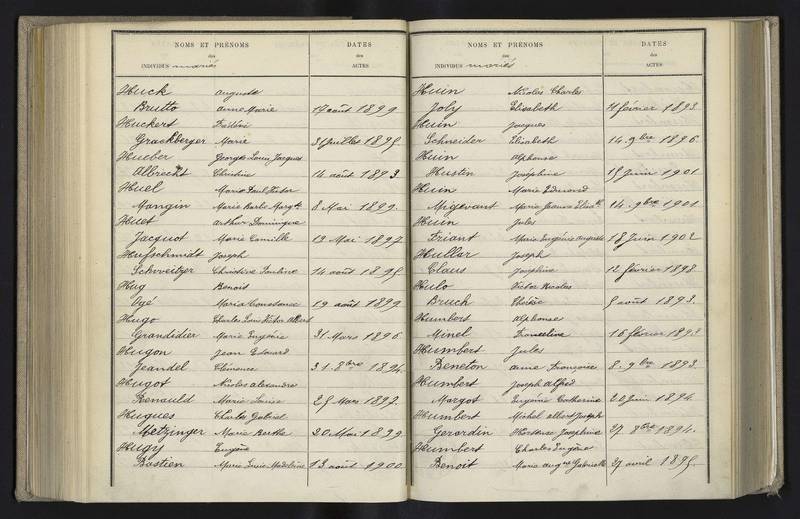 NOMS ET PRÉNOMS
des
INDIVIDUS mariés
DATES
des
ACTES
Huck Auguste
Brutto Anne Marie 17 août 1899
Huckert Frédéric
Grackberger Marie 31 Juillet 1895
Hueber Georges Louis Jacques
Albrecht Christine 14 août 1893
Huel Marie Paul Victor
Mangin Marie Barbe Margte 8 Mai 1899.
Huet Arthur Dominique
Jacquot Marie Camille 19 Mai 1897
Hufschmidt Joseph
Schweitzer Christine Pauline 14 août 1895
Hug Benoit
Ogé Marie Constance 19 août 1899
Hugo Charles Louis Victor Albert
Grandidier Marie Eugénie 31 Mars 1896
Hugon Jean Edouard
Jeandel Clémence 31. 8bre 1894.
Hugot Nicolas Alexandre
Renauld Marie Louise 29 Mars 1897.
Hugues Charles Gabriel
Metzinger Marie Berthe 20 Mai 1899
Hugy Eugène
Bastien Marie Louise Madeleine 13 août 1900
NOMS ET PRÉNOMS
des
INDIVIDUS mariés
DATES
des
ACTES
Huin Nicolas Charles
Joly Elisabeth février 1893
Huin Jacques
Schneider Elisabeth 14. 9bre 1896
Huin Alphonse
Hustin Joséphine 15 Juin 1901
Huin Marie Edmond
Migevant Marie Jeanne Elisath 14. 9bre 1901
Huin Jules
Friant Marie Eugénie Augusta 18 Juin 1902
Hullar Joseph
Claus Joséphine 12 février 1898
Hulo Victor Nicolas
Bruch Thérèse 5 août 1893.
Humbert Alphonse
Minel Franceline 16 février 1892
Humbert Jules
Beneton Anne Françoise 8. 9bre 1893
Humbert Joseph Alfred
Margot Eugénie Catherine 20 Juin 1894
Humbert Michel Albert Joseph
Gerardin Hortense Joséphine 27 8bre 1894.
Humbert Charles Eugène
Benoit Marie Augne Gabrielle 27 avril 1895